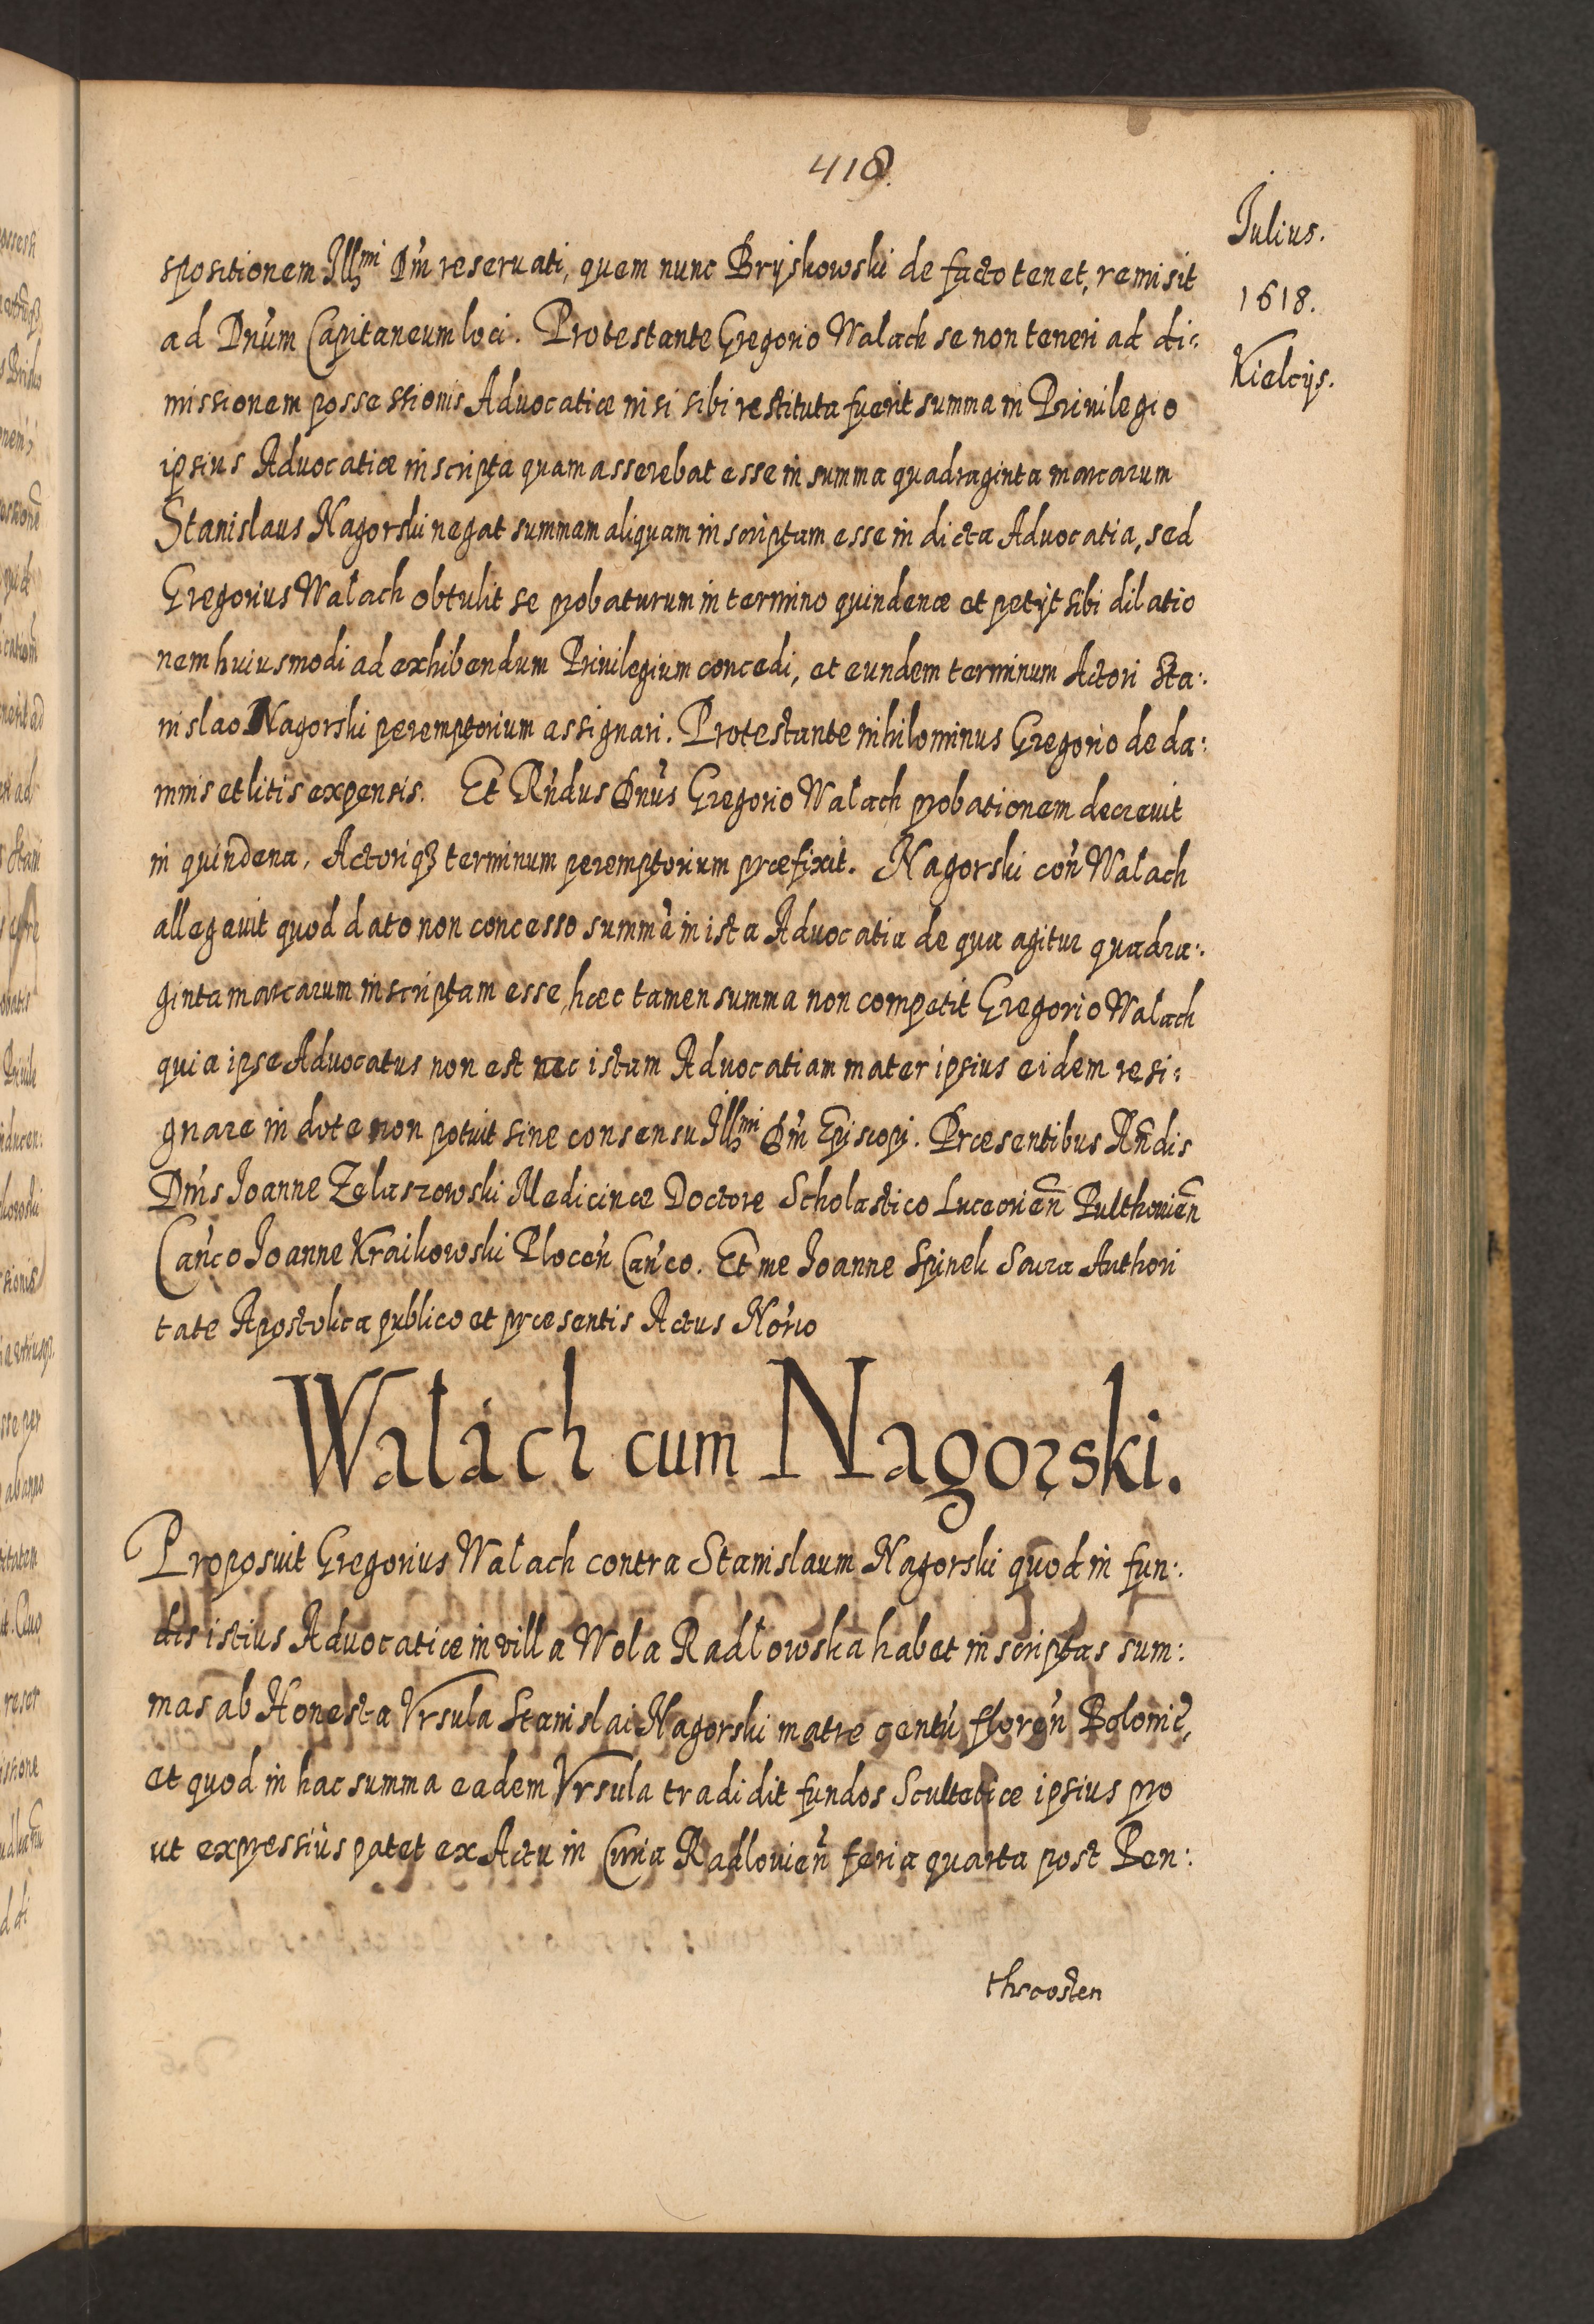 418.
Iulius.
1618.
Kielcijs.
spositionem Illmi Dni reseruati, quem nunc Bryskowski de facto tenet, remisit
ad Dnum Capitaneum loci. Protestante Gregorio Walach se non teneri ad di:
missionem possessionis Aduocatiæ nisi sibi restituta fuerit summa in Priuilegio
ipsius Aduocatiæ inscripta quam asserebat esse in summa quadraginta marcarum
Stanislaus Nagorski negat summam aliquam inscriptam esse in dicta Aduocatia, sed
Gregorius Walach obtulit se probaturum in termino quindenæ et petijt sibi dilatio
nem huiusmodi ad exhibendum Priuilegium concedi, et eundem terminum Actori Sta:
nislao Nagorski peremptorium assignari. Protestante nihilominus Gregorio de da:
mnis et litis expensis. Et Rndus Dnus Gregorio Walach probationem decreuit
in quindena, Actoriq3 terminum peremptorium præfixit. Nagorski con Walach
allegauit quod dato non concesso summã in ista Aduocatia de qua agitur quadra:
ginta marcarum inscriptam esse, hæc tamen summa non competit Gregorio Walach
quia ipse Aduocatus non est nec istam Aduocatiam mater ipsius eidem resi:
gnare in dote non potuit sine consensu Illmi Dni Episcopi. Præsentibus Rndis
Dnis Joanne Zelaszowski Medicinæ Doctore Scholastico Luceorien Pulthouien
Canco Joanne Kraikowski Plocen Canco. Et me Joanne Spinek Sacra Authori
tate Apostolica publico et præsentis Actus Norio
Walach cum Nagorski.
Proposuit Gregorius Walach contra Stanislaum Nagorski quod in fun:
dis istius Aduocatiæ in villa Wola Radlowska habet inscriptas sum:
mas ab Honesta Vrsula Stanislai Nagorski matre centũ floren Polonic,
et quod in hac summa eadem Vrsula tradidit fundos Scultetiæ ipsius pro
ut expressius patet ex Actu in Curia Radlouien feria quarta post Pen:
thecosten